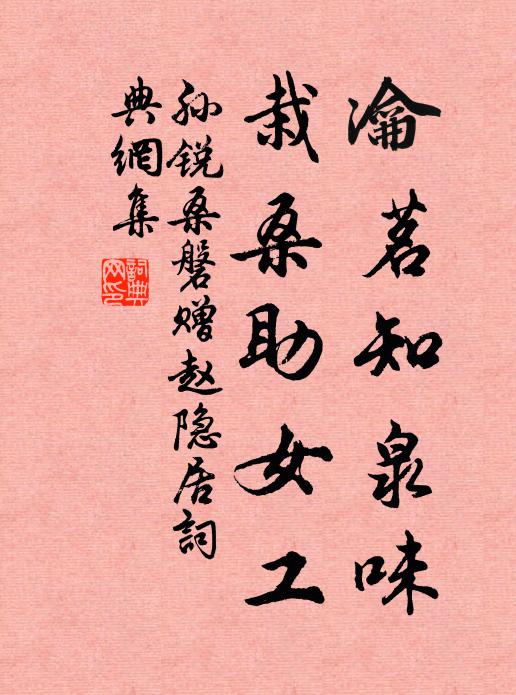 瀹茗知泉味
栽桑助女工
孙锐桑磐赠赵隐居詞
典網集
詞典
网印